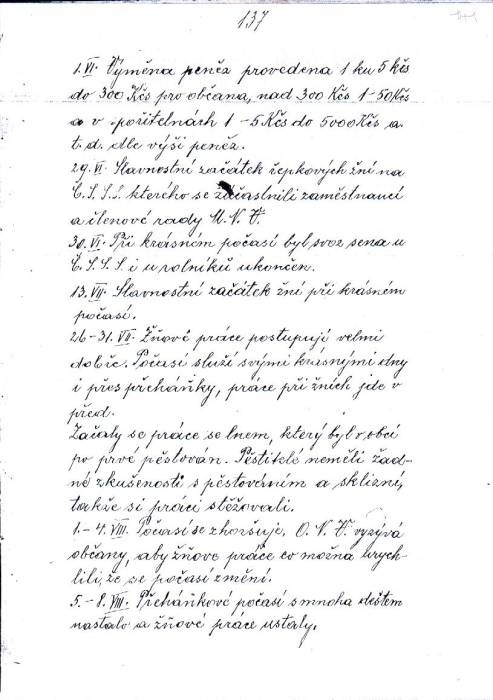 137
1.VI. Výměna peněz provedena 1 ku 5 kčs
do 300 Kčs pro občana, nad 300 Kčs 1-50 Kčs
a v spořitelnách 1-5 Kčs do 5000 Kčs a.
t. d. dle výši peněz.
29.VI. Slavnostní začátek řepkových žní na
Č.S.S.S. kterého se zúčastnili zaměstnanci
a členové rady M.N.V.
30.VI. Při krásném počasí byl svoz sena u
Č.S.S.S. i u rolníků ukončen.
13.VII. Slavnostní začátek žní při krásném
počasí.
26-31.VII. Žňové práce postupují velmi
dobře. Počasí služí svými krásnými dny
i přes přeháňky, práce při žních jde v
před.
Začaly se práce se lnem, který byl v obci
po prvé pěstován. Pěstitelé neměli žad-
né zkušenosti s pěstováním a sklizní,
takže si práci stěžovali.
1.-4.VIII. Počasí se zhoršuje. O.N.V. vyzývá
občany, aby žňové práce co možna urych-
lili, že se počasí změní.
5.-8.VIII. Přeháňkové počasí s mnoha deštem
nastalo a žňové práce ustaly.